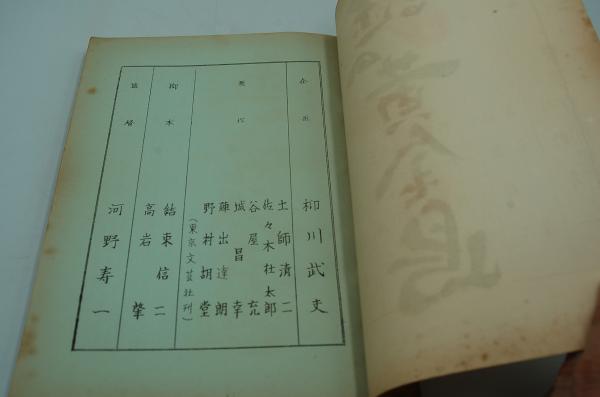 企画
柳川武夫
原作
土師清二
佐々木杜太郎
谷屋充
城昌幸
陣出達朗
野村胡堂
(東京文芸社刊)
脚本
結束信二
高岩肇
監督
河野寿一
黄金島